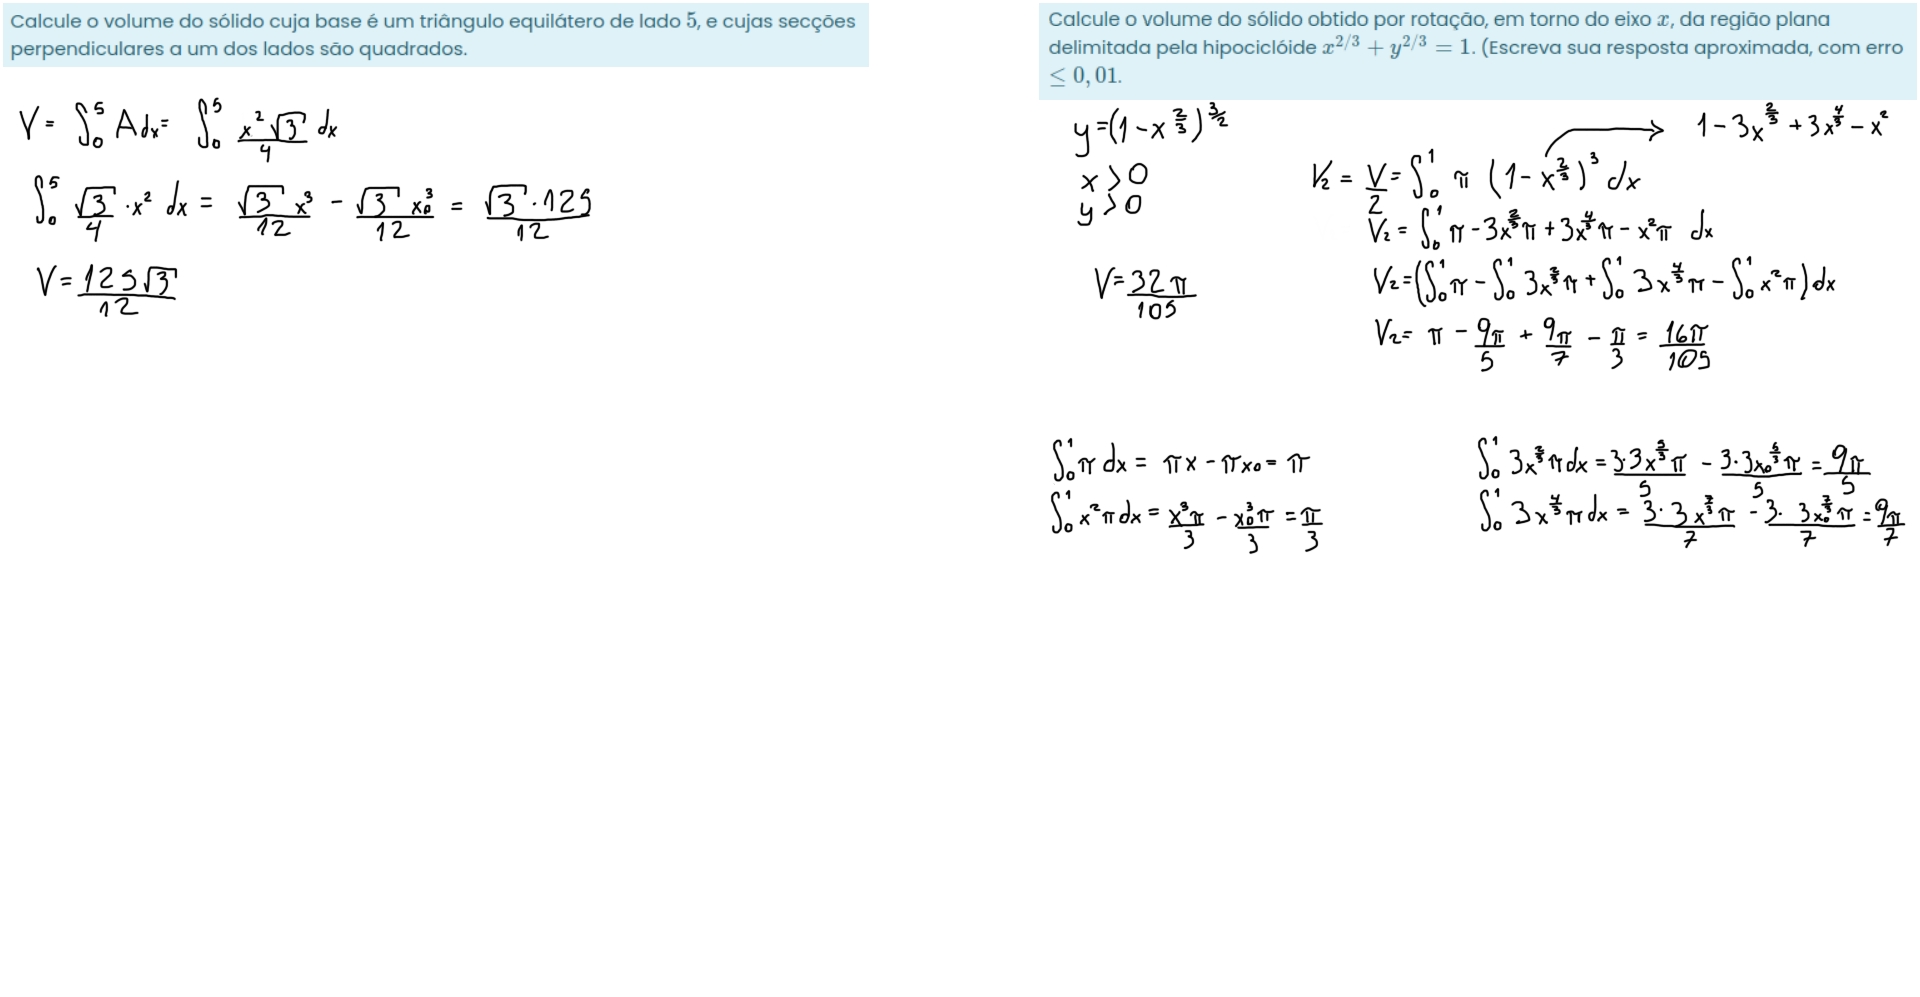 Calcule o volume do sólido cuja base é um triângulo equilátero de lado 5, e cujas secções
perpendiculares a um dos lados são quadrados.
V = ∫₀⁵ A dx = ∫₀⁵ x²√3/4 dx
∫₀⁵ √3/4 · x² dx = √3/12 x³ - √3/12 x₀³ = √3 · 125/12
V = 125√3/12
Calcule o volume do sólido obtido por rotação, em torno do eixo x, da região plana
delimitada pela hipociclóide x^{2/3} + y^{2/3} = 1. (Escreva sua resposta aproximada, com erro
≤ 0, 01.
y = (1 - x^{2/3})^{3/2}
1 - 3x^{2/3} + 3x^{4/3} - x²
x > 0
y > 0
V₂ = V/2 = ∫₀¹ π (1 - x^{2/3})³ dx
V₂ = ∫₀¹ π - 3x^{2/3}π + 3x^{4/3}π - x²π dx
V₂ = (∫₀¹ π - ∫₀¹ 3x^{2/3}π + ∫₀¹ 3x^{4/3}π - ∫₀¹ x²π) dx
V = 32π/105
V₂ = π - 9π/5 + 9π/7 - π/3 = 16π/105
∫₀¹ π dx = πx - πx₀ = π
∫₀¹ x²π dx = x³π/3 - x₀³π/3 = π/3
∫₀¹ 3x^{2/3}π dx = 3·3x^{5/3}π/5 - 3·3x₀^{5/3}π/5 = 9π/5
∫₀¹ 3x^{4/3}π dx = 3·3x^{7/3}π/7 - 3·3x₀^{7/3}π/7 = 9π/7